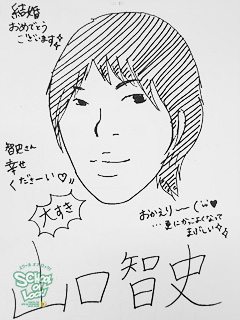 結婚
おめでとう
ございます
智史さん
幸せ
くださーい♡
大すき
おかえりー(¨)♥
...更にかっこよくなって
まぶしい
SCHOOL
OF LOCK!
山口智史